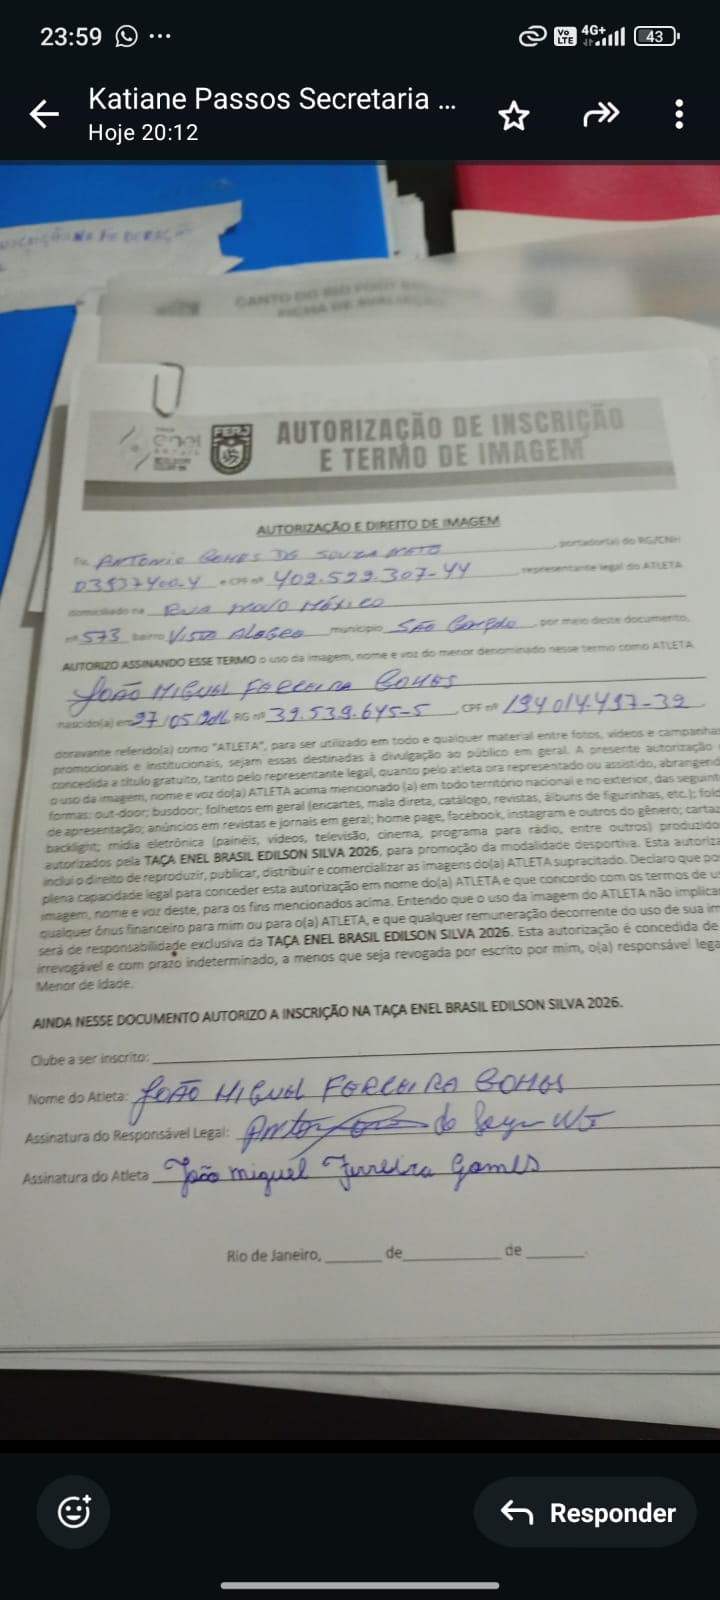 23:59
4G+
Vo
LTE
43
Katiane Passos Secretaria ...
Hoje 20:12
NA
CANTO DO RIO FOOT
FICHA DE
TAÇA
enel
BRASIL
FERJ
AUTORIZAÇÃO DE INSCRIÇÃO
E TERMO DE IMAGEM
AUTORIZAÇÃO E DIREITO DE IMAGEM
Eu, ANTONIO GOMES DE SOUZA NETO, portador(a) do RG/CNH
e CPF nº 402.529.307-44, representante legal do ATLETA
domiciliado na RUA NOVO MÉXICO
nº 573 bairro VISTA ALEGRE município SÃO GONÇALO, por meio deste documento,
AUTORIZO ASSINANDO ESSE TERMO o uso da imagem, nome e voz do menor denominado nesse termo como ATLETA
JOÃO MIGUEL FERREIRA GOMES
nascido(a) em 27/05/ RG nº 39.539.645-5, CPF nº 194014.497-39
doravante referido(a) como "ATLETA", para ser utilizado em todo e qualquer material entre fotos, vídeos e campanha
promocionais e institucionais, sejam essas destinadas à divulgação ao público em geral. A presente autorização
concedida a título gratuito, tanto pelo representante legal, quanto pelo atleta ora representado ou assistido, abrangend
o uso da imagem, nome e voz do(a) ATLETA acima mencionado (a) em todo território nacional e no exterior, das seguint
formas: out-door; busdoor; folhetos em geral (encartes, mala direta, catálogo, revistas, álbuns de figurinhas, etc.); fold
de apresentação; anúncios em revistas e jornais em geral; home page, facebook, instagram e outros do gênero; cartaz
backlight; mídia eletrônica (painéis, vídeos, televisão, cinema, programa para rádio, entre outros) produzido
autorizados pela TAÇA ENEL BRASIL EDILSON SILVA 2026, para promoção da modalidade desportiva. Esta autoriza
inclui o direito de reproduzir, publicar, distribuir e comercializar as imagens do(a) ATLETA supracitado. Declaro que po
plena capacidade legal para conceder esta autorização em nome do(a) ATLETA e que concordo com os termos de u
imagem, nome e voz deste, para os fins mencionados acima. Entendo que o uso da imagem do ATLETA não implica
qualquer ônus financeiro para mim ou para o(a) ATLETA, e que qualquer remuneração decorrente do uso de sua im
será de responsabilidade exclusiva da TAÇA ENEL BRASIL EDILSON SILVA 2026. Esta autorização é concedida de
irrevogável e com prazo indeterminado, a menos que seja revogada por escrito por mim, o(a) responsável lega
Menor de Idade.
AINDA NESSE DOCUMENTO AUTORIZO A INSCRIÇÃO NA TAÇA ENEL BRASIL EDILSON SILVA 2026.
Clube a ser inscrito:
Nome do Atleta: JOÃO MIGUEL FERREIRA GOMES
Assinatura do Responsável Legal:
Assinatura do Atleta João Miguel Ferreira Gomes
Rio de Janeiro, ______ de __________ de ______.
Responder